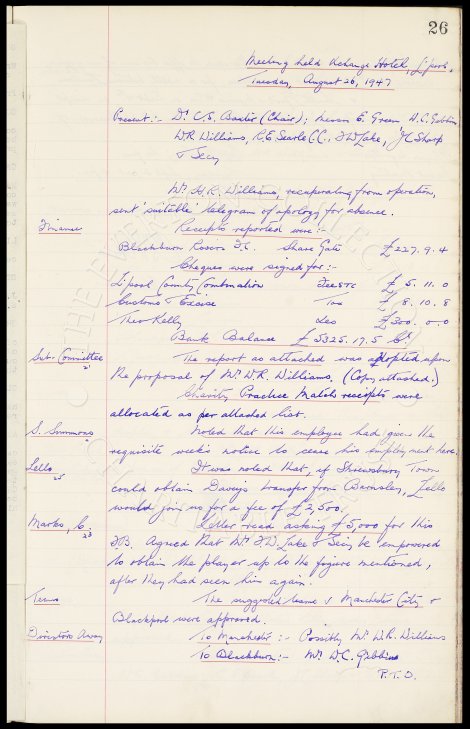 26
Meeting held Exchange Hotel, L'pool,
Tuesday, August 26, 1947
Present:- Dr. C.S. Baxter (Chair); Messrs E. Green W.C. Gibbins
W.R. Williams, R.E. Searle C.C., T.W. Lake, J.C. Sharp
& Secy
Mr. H.R. Williams, recuperating from operation,
sent 'suitable' telegram of apology for absence.
Finance Receipts reported were:-
Blackburn Rovers F.C. Share Gate £227. 9. 4
Cheques were signed for:-
L'pool County Combination Fees etc £ 5. 11. 0
Customs & Excise Tax £ 8. 10. 8
Theo Kelly £300. 0. 0
Bank Balance £5325. 17. 5 Cr
Sub. Committee The report as attached was adopted upon
21
the proposal of Mr. W.R. Williams. (Copy attached.)
Charity Practice Match receipts were
allocated as per attached list.
S. Simmons Noted that this employee had given the
requisite week's notice to cease his employment here.
Lello It was noted that, if Shrewsbury Town
25
could obtain Davey's transfer from Barnsley, Lello
would join us for a fee of £2,500.
Marks, C. Letter read asking £5,000 for this
23
FB. Agreed that Mr. T.W. Lake & Secy be empowered
to obtain the player up to the figure mentioned,
after they had seen him again.
Teams The suggested teams v Manchester City &
Blackpool were approved.
Directors Away To Manchester:- Possibly Mr. W.R. Williams
To Blackburn:- Mr. W.C. Gibbins
P.T.O.